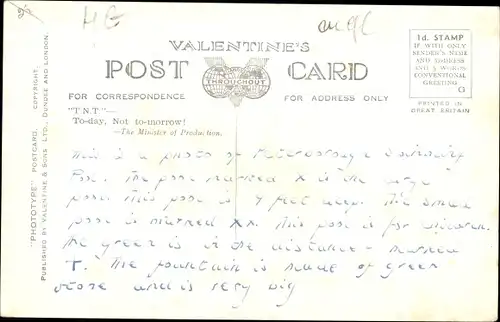 HG
VALENTINE'S
POST CARD
THROUGHOUT THE WORLD
FOR CORRESPONDENCE
FOR ADDRESS ONLY
1d. STAMP
IF WITH ONLY
SENDER'S NAME
AND ADDRESS
AND 5 WORDS
CONVENTIONAL
GREETING
G
PRINTED IN
GREAT BRITAIN
"T.N.T"—
To-day, Not to-morrow!
—The Minister of Production.
"PHOTOTYPE" POSTCARD. COPYRIGHT.
PUBLISHED BY VALENTINE & SONS LTD., DUNDEE AND LONDON.
This is a photo of Peterborough Swimming
Pool. The pool marked X is the large
pool. This pool is 9 feet deep. The small
pool is marked XX. This pool is for children.
The green is in the distance - marked
T. The fountain is made of green
stone and is very big